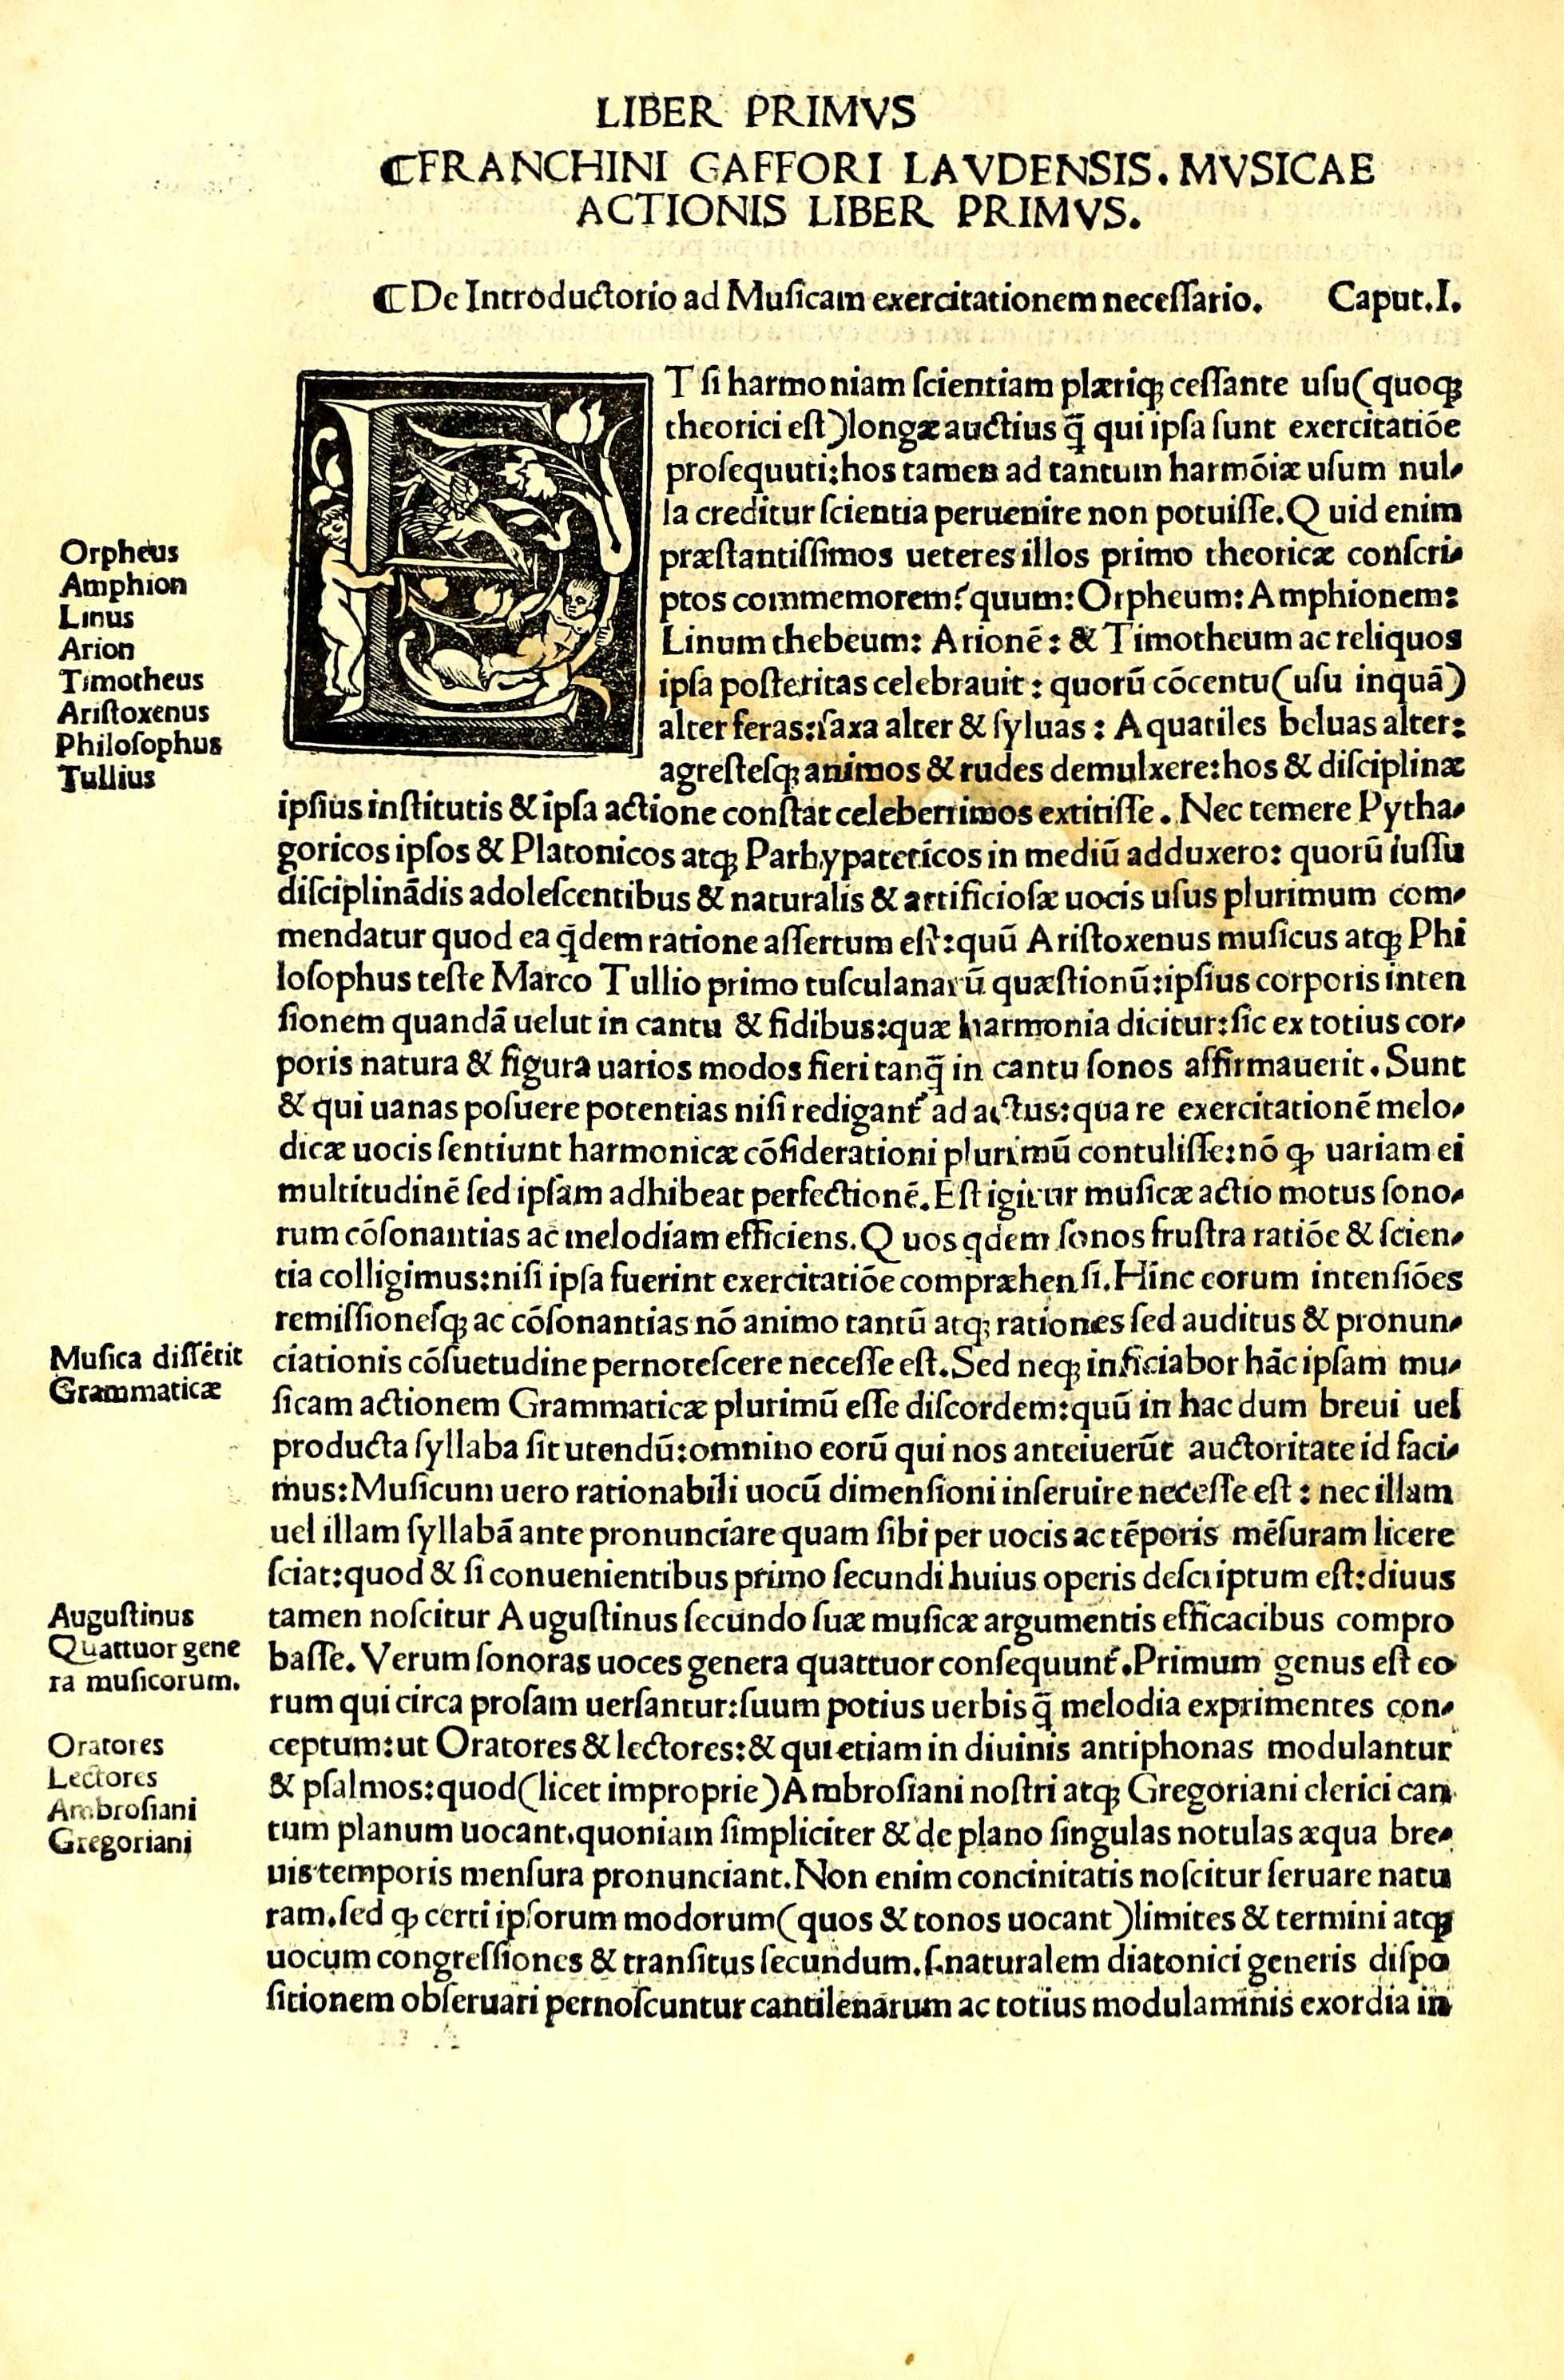 LIBER PRIMVS
⸿FRANCHINI GAFFORI LAVDENSIS. MVSICAE
ACTIONIS LIBER PRIMVS.
⸿De Introductorio ad Musicam exercitationem necessario. Caput.I.
ET si harmoniam scientiam plæriqꝫ cessante usu(quoqꝫ
theorici est)longæ auctius q̄ qui ipsa sunt exercitatiōe
prosequuti:hos tamen ad tantum harmōiæ usum nul-
la creditur scientia peruenire non potuisse.Quid enim
præstantissimos ueteres illos primo theoricæ conscri-
ptos commemorem?quum:Orpheum:Amphionem:
Linum thebeum: Arionē: & Timotheum ac reliquos
ipsa posteritas celebrauit: quorū cōcentu(usu inquā)
alter feras:saxa alter & syluas: Aquatiles beluas alter:
agrestesqꝫ animos & rudes demulxere:hos & disciplinæ
ipsius institutis & ipsa actione constat celeberrimos extitisse. Nec temere Pytha-
goricos ipsos & Platonicos atqꝫ Parhypateticos in mediū adduxero: quorū iussu
disciplinādis adolescentibus & naturalis & artificiosæ uocis usus plurimum com-
mendatur quod ea q̄dem ratione assertum est:quū Aristoxenus musicus atqꝫ Phi
losophus teste Marco Tullio primo tusculanarū quæstionū:ipsius corporis inten
sionem quandā uelut in cantu & fidibus:quæ harmonia dicitur:sic ex totius cor-
poris natura & figura uarios modos fieri tanq̄ in cantu sonos affirmauerit. Sunt
& qui uanas posuere potentias nisi redigant᷑ ad actus:quare exercitationē melo-
dicæ uocis sentiunt harmonicæ cōsiderationi plurimū contulisse:nō ꝙ uariam ei
multitudinē sed ipsam adhibeat perfectionē.Est igitur musicæ actio motus sono-
rum cōsonantias ac melodiam efficiens.Quos qdem sonos frustra ratiōe & scien-
tia colligimus:nisi ipsa fuerint exercitatiōe compræhensi.Hinc eorum intensiōes
remissionesqꝫ ac cōsonantias nō animo tantū atqꝫ rationes sed auditus & pronun-
ciationis cōsuetudine pernotescere necesse est.Sed neqꝫ inficiabor hāc ipsam mu-
sicam actionem Grammaticæ plurimū esse discordem:quū in hac dum breui uel
producta syllaba sit utendū:omnino eorū qui nos anteiuerūt auctoritate id faci-
mus:Musicum uero rationabili uocū dimensioni inseruire necesse est: nec illam
uel illam syllabā ante pronunciare quam sibi per uocis ac tēporis mēsuram licere
sciat:quod & si conuenientibus primo secundi huius operis descriptum est:diuus
tamen noscitur Augustinus secundo suæ musicæ argumentis efficacibus compro
basse. Verum sonoras uoces genera quattuor consequunt᷑.Primum genus est eo
rum qui circa prosam uersantur:suum potius uerbis q̄ melodia exprimentes con-
ceptum:ut Oratores & lectores:& qui etiam in diuinis antiphonas modulantur
& psalmos:quod(licet improprie)Ambrosiani nostri atqꝫ Gregoriani clerici can
tum planum uocant.quoniam simpliciter & de plano singulas notulas æqua bre-
uis temporis mensura pronunciant.Non enim concinitatis noscitur seruare natu
ram.sed ꝙ certi ipsorum modorum(quos & tonos uocant)limites & termini atqꝫ
uocum congressiones & transitus secundum.s.naturalem diatonici generis dispo
sitionem obseruari pernoscuntur cantilenarum ac totius modulaminis exordia in
Orpheus
Amphion
Linus
Arion
Timotheus
Aristoxenus
Philosophus
Tullius
Musica dissētit
Grammaticæ
Augustinus
Quattuor gene
ra musicorum.
Oratores
Lectores
Ambrosiani
Gregoriani